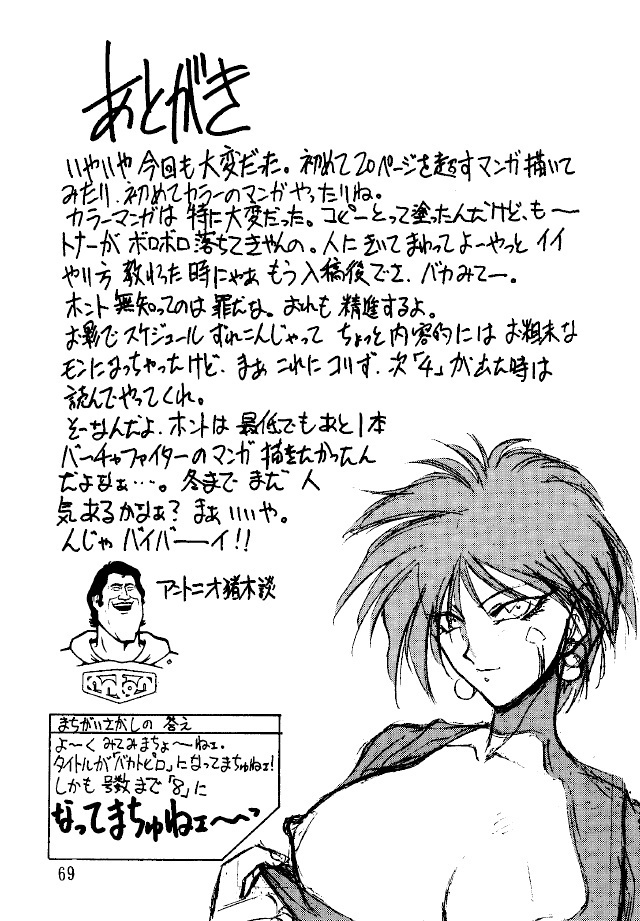 あとがき
いやいや今回も大変だった。初めて20ページを越すマンガ描いて
みたり、初めてカラーのマンガやったりね。
カラーマンガは特に大変だった。コピーとって塗ったんだけど、も〜
トナーがボロボロ落ちてきやんの。人にきいてまわってよーやっとイイ
やり方教わった時にゃあもう入稿後でさ、バカみてー。
ホント無知ってのは罪だな。おれも精進するよ。
お影でスケジュールずれこんじゃってちょっと内容的にはお粗末な
モンになっちゃったけど、まぁこれにコリず、次「4」が出た時は
読んでやってくれ。
そーなんだよ、ホントは最低でもあと1本
バーチャファイターのマンガ描きたかったん
だよなぁ…。冬までまだ人
気あるかなぁ?まぁいいや。
んじゃバイバーイ!!
アントニオ猪木談
まちがいさがしの答え
よ〜くみてみまちょ〜ねェ。
タイトルが「バカトピロ」になってまちゅねェ!
しかも号数まで「8」に
なってまちゅねェ〜っ
69